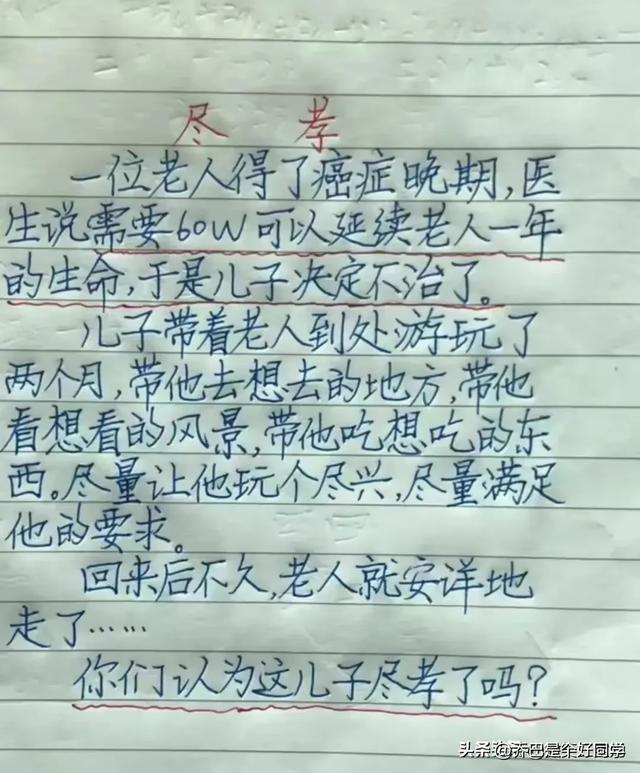 尽 孝
一位老人得了癌症晚期,医
生说需要60W可以延续老人一年
的生命,于是儿子决定不治了。
儿子带着老人到处游玩了
两个月,带他去想去的地方,带他
看想看的风景,带他吃想吃的东
西。尽量让他玩个尽兴,尽量满足
他的要求。
回来后不久,老人就安详地
走了……
你们认为这儿子尽孝了吗?
头条 @乔巴是个好同学